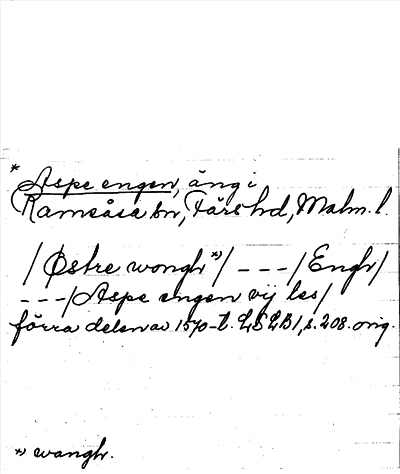 * Aspe engen, äng i
Ramsåsa sn, Färs hd, Malm. l.
/Østre wongh *)/ - - - /Engh/
- - - /Aspe engen vij les/
förra delen av 1570-t. LSLB 1, s. 208. orig.
*) wangh.